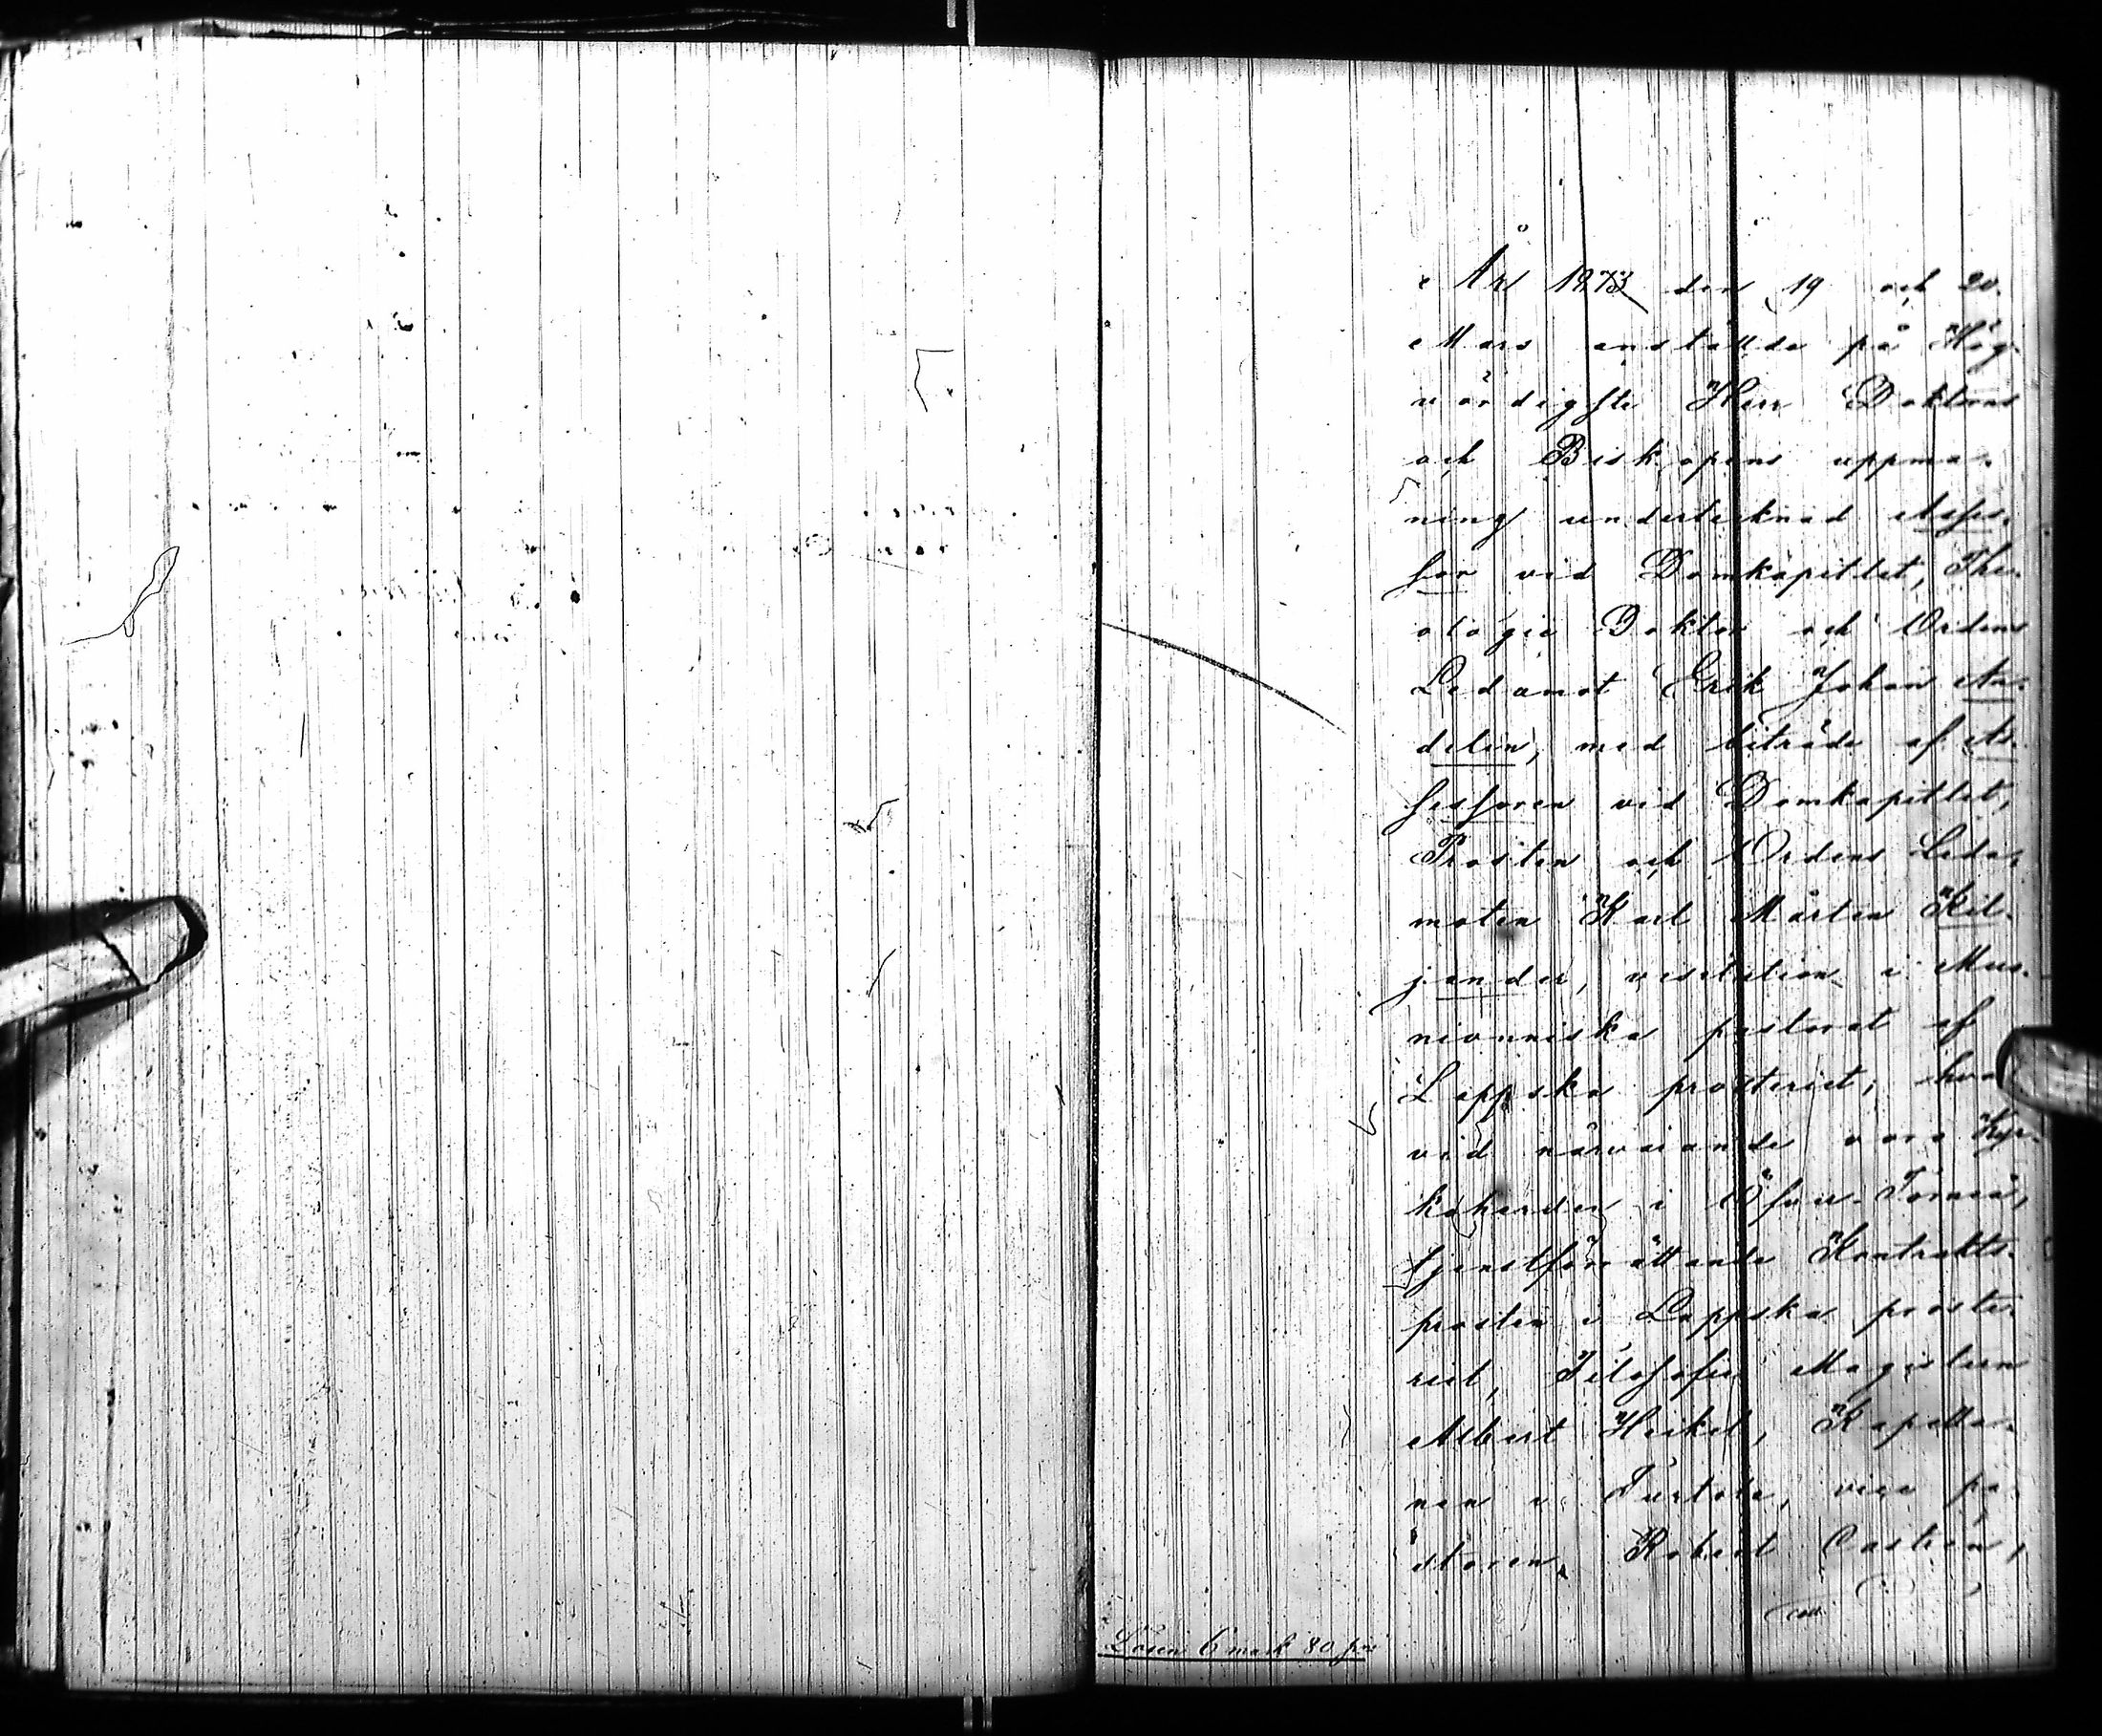 År 1873 den 19 och 20.
Mars anställde på Hög-
vördigste Herr Doktorns
och Biskopens uppma-
ning undertecknad Asses-
sor vid Domkapitlet, The-
ologie Doktor och Ordens
Ledamot Erik Johan An-
delin, med biträde af As-
sessoren vid Domkapitlet,
Prosten och Ordens Leda-
moten Karl Mårten Kil-
jander, visitation i Muo-
nionniska pastorat af
Lappska prosteriet; hvar
vid närvarande voro Kyr-
koherden i Öfver-Torneå,
tjenstförrättande Kontrakts-
prosten i Lappska proste-
riet, Filosofie Magistern
Albert Heikel, Kapella-
nen i Turtola, vice pa-
storen, Robert Castrén,
Lösen 6 mark 80 p:ni